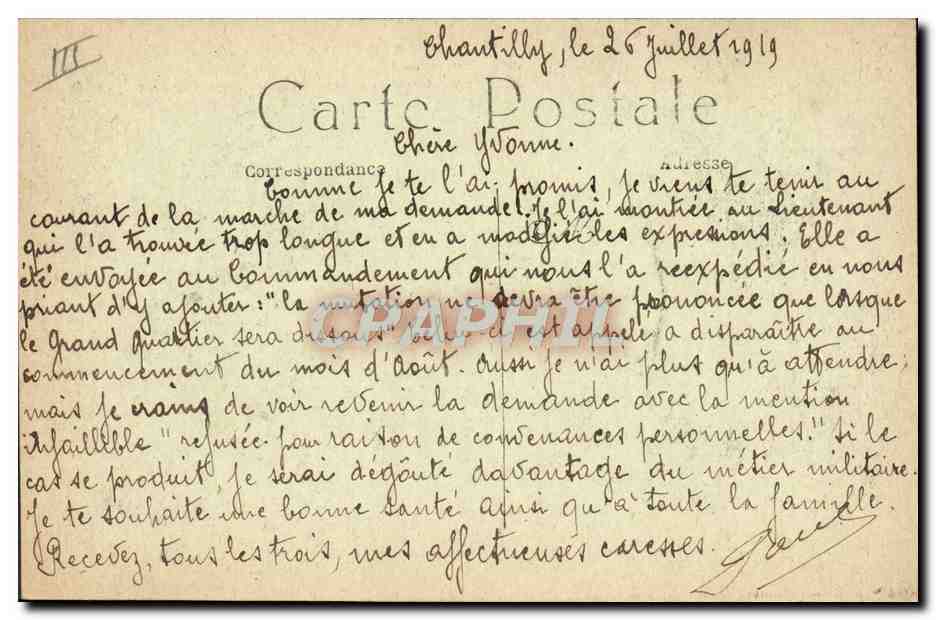 III
Chantilly, le 26 Juillet 1919
Carte Postale
Chère Yvonne.
Correspondance
Adresse
Comme je te l'ai promis, je viens te tenir au
courant de la marche de ma demande. Je l'ai montrée au Lieutenant
qui l'a trouvée trop longue et en a modifié les expressions. Elle a
été envoyée au Commandement qui nous l'a réexpédié en nous
priant d'y ajouter : "la mutation ne devra être prononcée que lorsque
le Grand Quartier sera dissous" Celui ci est appelé a disparaître au
commencement du mois d'Août. Aussi je n'ai plus qu'à attendre,
mais je crains de voir revenir la demande avec la mention
infaillible "refusée pour raison de convenances personnelles." Si le
cas se produit, je serai dégoûté davantage du métier militaire.
Je te souhaite une bonne santé ainsi qu'à toute la famille.
Recevez, tous les trois, mes affectueuses caresses.
CPAPHIL